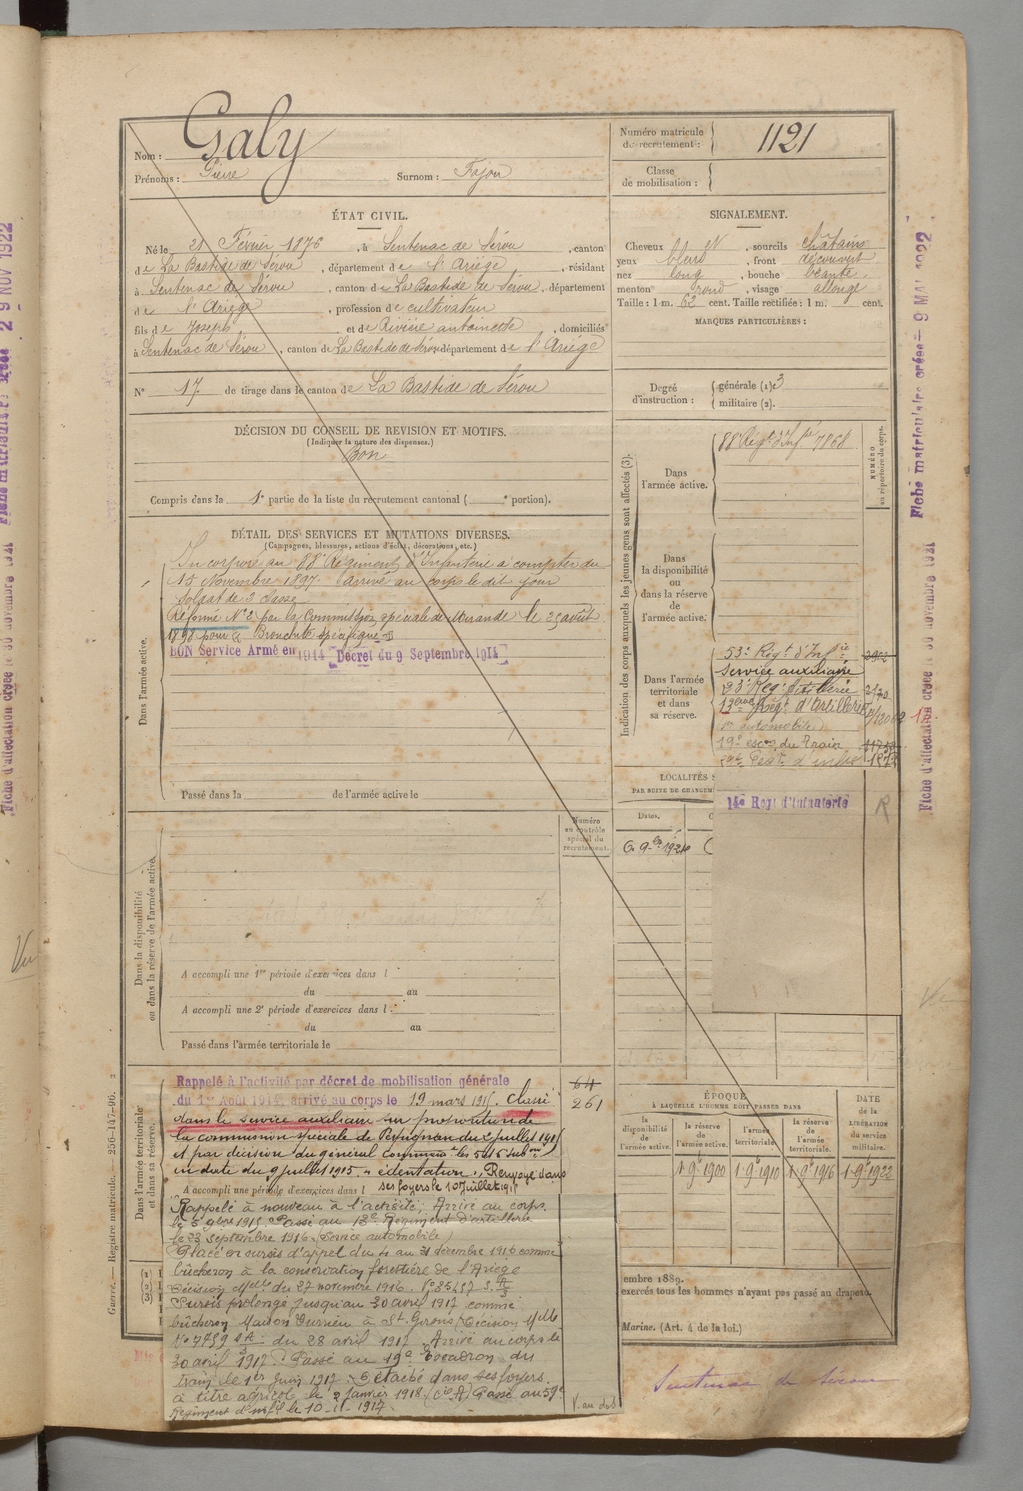 Nom : Galy
Prénoms : Pierre Surnom : Fajou
Numéro matricule de recrutement : 1121
Classe de mobilisation :
ÉTAT CIVIL.
Né le 21 Février 1876, à Sentenac de Sérou, canton
de La Bastide de Sérou, département de l'Ariège, résidant
à Sentenac de Sérou, canton de La Bastide de Sérou, département
de l'Ariège, profession de cultivateur
fils de Joseph et de Rivière antoinette, domiciliés
à Sentenac de Sérou, canton de La Bastide de Sérou département de l'Ariège
N° 17 de tirage dans le canton de La Bastide de Sérou
SIGNALEMENT.
Cheveux et sourcils châtains
yeux bleus, front découvert
nez long, bouche béante
menton rond, visage allongé
Taille : 1 m. 62 cent. Taille rectifiée : 1 m. cent.
MARQUES PARTICULIÈRES :
Degré d'instruction : générale (1) 3
militaire (2).
DÉCISION DU CONSEIL DE REVISION ET MOTIFS.
(Indiquer la nature des dispenses.)
Bon
Compris dans la 1e partie de la liste du recrutement cantonal ( portion).
DÉTAIL DES SERVICES ET MUTATIONS DIVERSES.
(Campagnes, blessures, actions d'éclat, décorations, etc.)
Dans l'armée active.
Incorporé au 88e Régiment d'Infanterie à compter du
15 Novembre 1897. Arrivé au corps le dit jour
soldat de 2 classe
Réformé N° 2 par la Commission spéciale de Mirande le 25 août
1898 pour Bronchite spécifique
BON Service Armé en 1914 Décret du 9 Septembre 1914
Passé dans la de l'armée active le
Indication des corps auxquels les jeunes gens sont affectés (3).
NUMÉRO au répertoire du corps.
Dans l'armée active.
88e Régt d'Infie 7868
Dans la disponibilité ou dans la réserve de l'armée active.
Dans l'armée territoriale et dans sa réserve.
53e Regt d'Infie
Service auxiliaire
13eme Régt d'Artillerie
automobile)
19e escon du Train
14e Regt d'Infanterie
R
LOCALITÉS
PAR SUITE DE CHANGEM
Dates.
Dans la disponibilité ou dans la réserve de l'armée active.
Numéro au contrôle spécial du recrutement.
A accompli une 1re période d'exercices dans l
du au
A accompli une 2e période d'exercices dans l
du au
Passé dans l'armée territoriale le
Dans l'armée territoriale et dans sa réserve.
Rappelé à l'activité par décret de mobilisation générale
du 1er Août 1914, arrivé au corps le 19 mars 1915. Classé
dans le service auxiliaire sur proposition de
la commission spéciale de Perpignan du 2 juillet 1915
et par décision du général Commt les 5e 16e Subons
en date du 9 juillet 1915. Renvoyé dans
A accompli une période d'exercices dans l
ses foyers le 10 Juillet 1915
64
261
Rappelé à nouveau à l'activité; Arrivé au corps
Passé au 13e Régiment d'artillerie
le 23 septembre 1916 (Service automobile)
Placé en sursis d'appel du au 31 décembre 1916 comme
bûcheron à la conservation forestière de l'Ariège
Décision Mlle du 27 novembre 1916
Sursis prolongé jusqu'au 30 avril 1917 comme
bûcheron Maison à St Girons (Décision Mlle
du 28 avril 1917 Arrivé au corps le
30 avril 1917. Passé au 19e Escadron du
train le 1er Juin 1917. Détaché dans ses foyers
à titre agricol le 2 Janvier 1918. Passé au 59e
Régiment d'infie le 10-11-1917.
V. au dos
ÉPOQUE
À LAQUELLE L'HOMME DOIT PASSER DANS
la disponibilité de l'armée active.
la réserve de l'armée active.
l'armée territoriale.
la réserve de l'armée territoriale.
DATE de la LIBÉRATION du service militaire.
1 9e 1900
1 9e 1910
1 9e 1916
1 9e 1922
embre 1889.
exercés tous les hommes n'ayant pas passé au drapeau.
Marine. (Art. 4 de la loi.)
Sentenac de Sérou
Guerre. — Registre matricule. 256-147-96.
Fiche d'affectation créée le 30 novembre 1921
Fiche matriculaire créée - 9 MAI 1922
29 NOV 1922
Vu